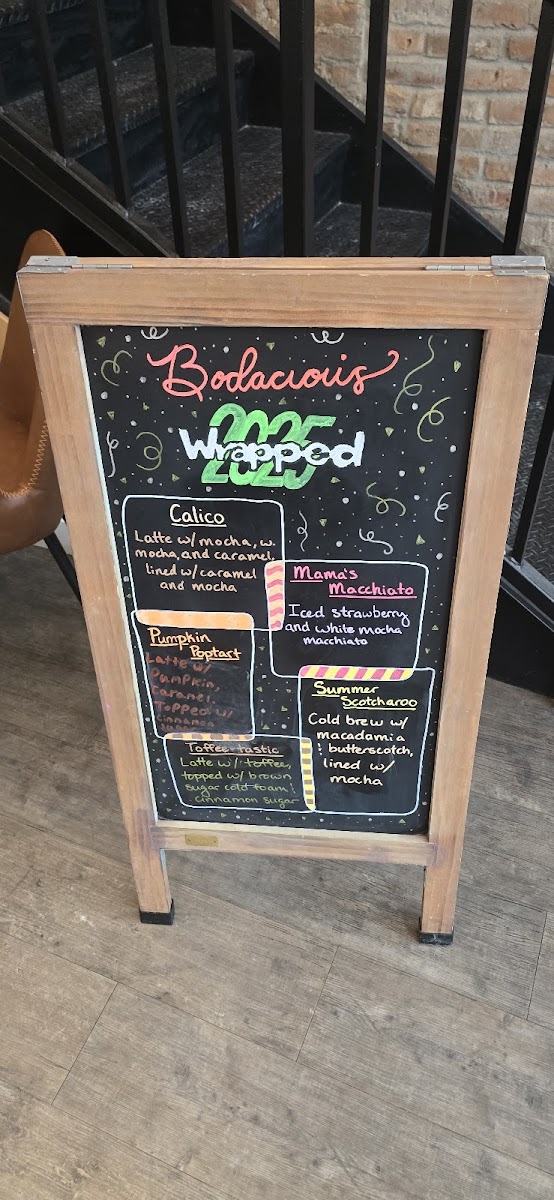 Bodacious
2025
Wrapped
Calico
Latte w/ mocha, w.
mocha, and caramel,
lined w/ caramel
and mocha
Mama's
Macchiato
Iced strawberry
and white mocha
macchiato
Pumpkin
Poptart
Latte w/
Pumpkin,
caramel,
Topped w/
cinnamon
Summer
Scotcharoo
Cold brew w/
macadamia
& butterscotch,
lined w/
mocha
Toffee-tastic
Latte w/ toffee,
topped w/ brown
sugar cold foam &
cinnamon sugar